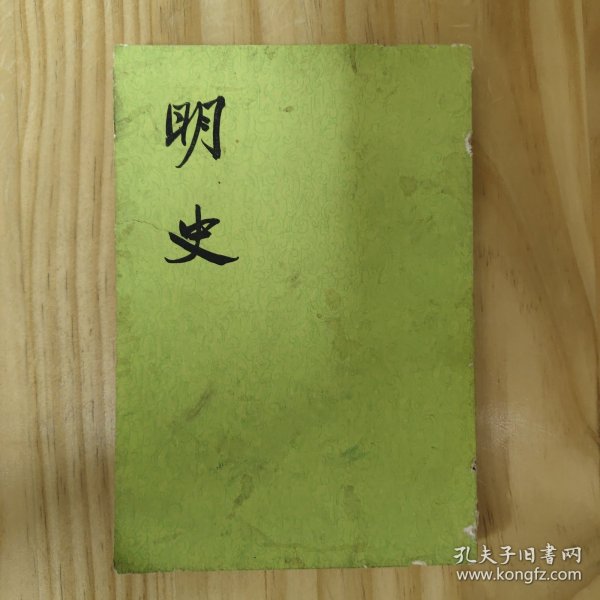 明史
孔夫子旧書网
www.kongfz.com